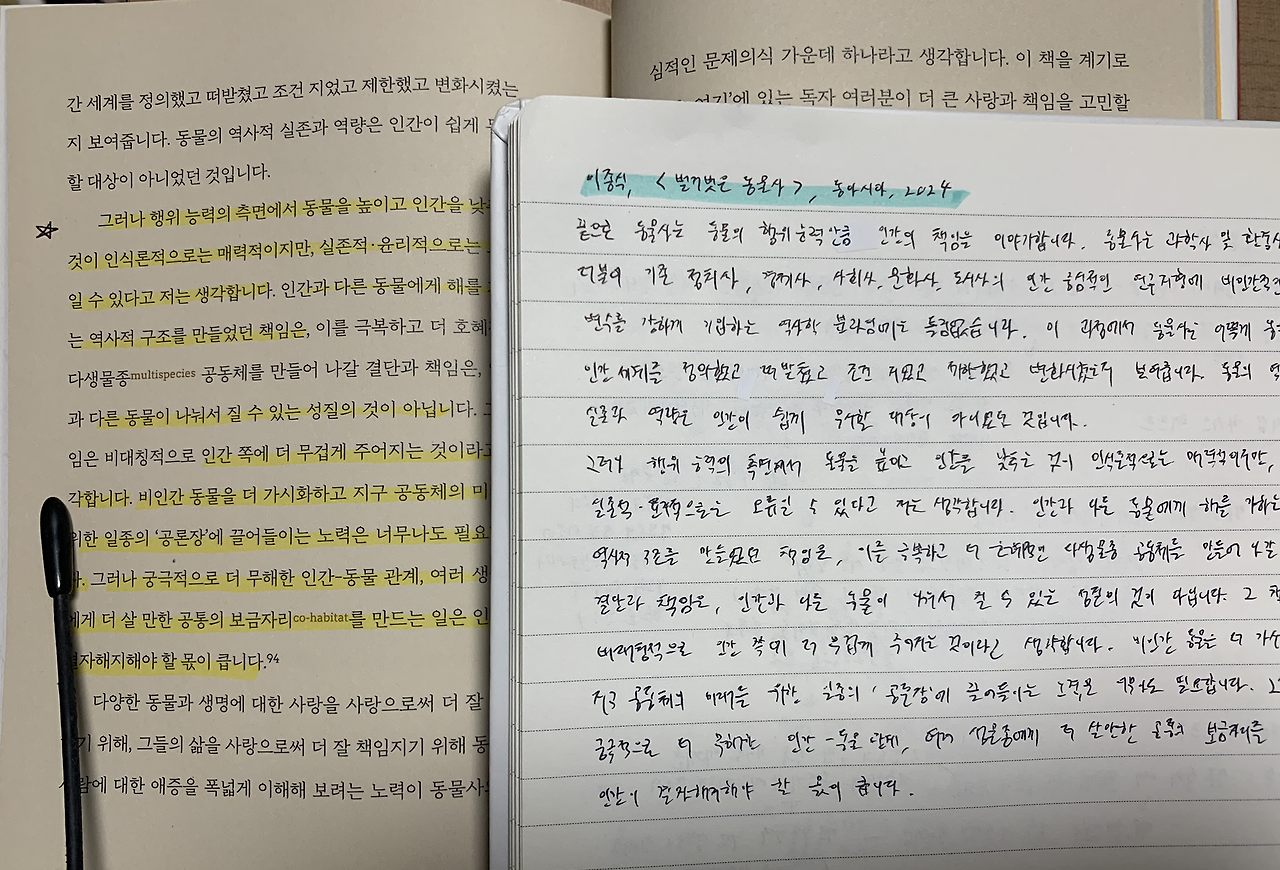 간 세계를 정의했고 떠받쳤고 조건 지었고 제한했고 변화시켰는
지 보여줍니다. 동물의 역사적 실존과 역량은 인간이 쉽게
할 대상이 아니었던 것입니다.
그러나 행위 능력의 측면에서 동물을 높이고 인간을
것이 인식론적으로는 매력적이지만, 실존적·윤리적으로는
일 수 있다고 저는 생각합니다. 인간과 다른 동물에게 해를
는 역사적 구조를 만들었던 책임은, 이를 극복하고 더
다생물종multispecies 공동체를 만들어 나갈 결단과 책임은,
과 다른 동물이 나눠서 질 수 있는 성질의 것이 아닙니다.
임은 비대칭적으로 인간 쪽에 더 무겁게 주어지는 것이라고
각합니다. 비인간 동물을 더 가시화하고 지구 공동체의
위한 일종의 '공론장'에 끌어들이는 노력은 너무나도
그러나 궁극적으로 더 무해한 인간-동물 관계, 여러
에게 더 살 만한 공통의 보금자리co-habitat를 만드는 일은
결자해지해야 할 몫이 큽니다.94
다양한 동물과 생명에 대한 사랑을 사랑으로써 더 잘
기 위해, 그들의 삶을 사랑으로써 더 잘 책임지기 위해
사람에 대한 애증을 폭넓게 이해해 보려는 노력이
심적인 문제의식 가운데 하나라고 생각합니다. 이 책을 계기로
여기'에 있는 독자 여러분이 더 큰 사랑과 책임을 고민할
이종식, <벌거벗은 동물사>, 동아시아, 2024
끝으로 동물사는 동물의 행위 능력만큼 인간의 책임을 이야기합니다. 동물사는 과학사 및
더불어 기존 정치사, 경제사, 사회사, 문화사, 도시사의 인간 중심적인 연구지형에
변수를 강하게 기입하는 역사학 분과임에는 틀림없습니다. 이 과정에서 동물사는 어떻게
인간 세계를 정의했고 떠받쳤고 조건 지었고 제한했고 변화시켰는지 보여줍니다. 동물의
실존과 역량은 인간이 쉽게 무시할 대상이 아니었던 것입니다.
그러나 행위 능력의 측면에서 동물을 높이고 인간을 낮추는 것이 인식론적으로는 매력적이지만,
실존적·윤리적으로는 오류일 수 있다고 저는 생각합니다. 인간과 다른 동물에게 해를 가하는
역사적 구조를 만들었던 책임은, 이를 극복하고 더 호혜적인 다생물종 공동체를 만들어 나갈
결단과 책임은, 인간과 다른 동물이 나눠서 질 수 있는 성질의 것이 아닙니다. 그
비대칭적으로 인간 쪽에 더 무겁게 주어지는 것이라고 생각합니다. 비인간 동물을 더
지구 공동체의 미래를 위한 일종의 '공론장'에 끌어들이는 노력은 너무나도 필요합니다.
궁극적으로 더 무해한 인간-동물 관계, 여러 생물종에게 더 살만한 공통의 보금자리를
인간이 결자해지해야 할 몫이 큽니다.